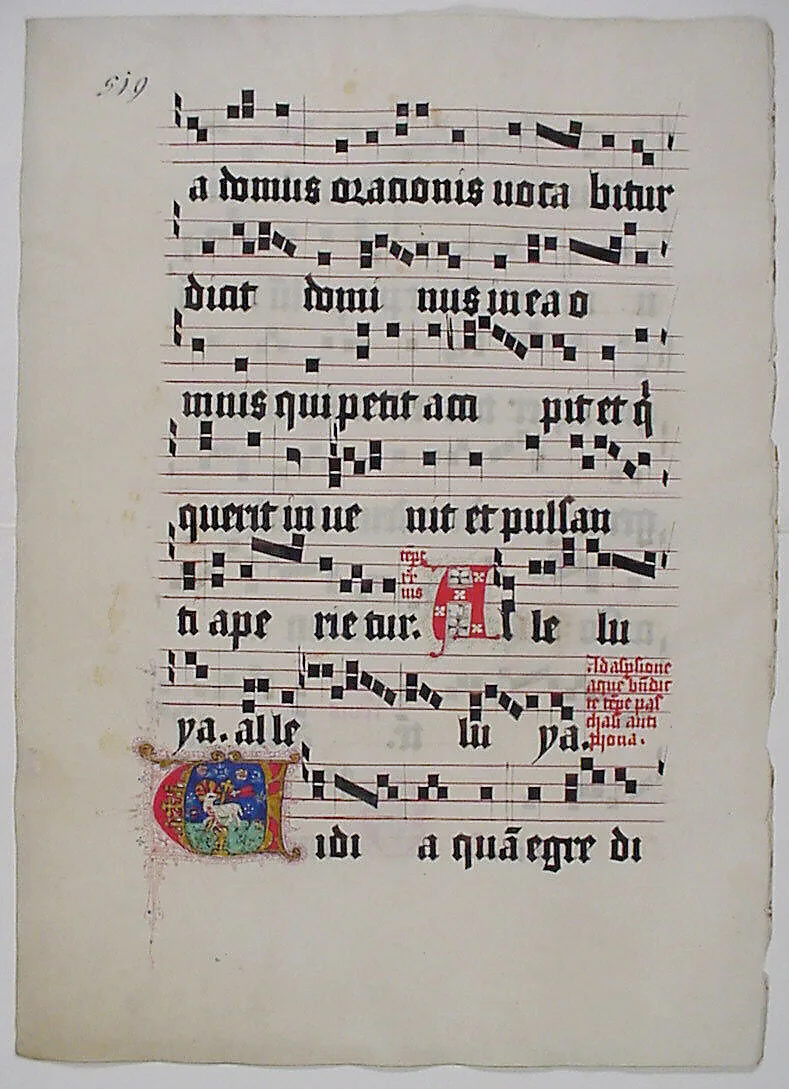 519
a domus orationis uoca bitur
dicit domi nus in ea o
mnis qui petit acci pit et q̇
querit in ue nit et pulsan
ti ape rie tur. Al le lu
ya. al le lu ya.
Ad aspsione
aque bn̄dic
te tp̄e pas
chali anti
phona.
Uidi a quā egre di